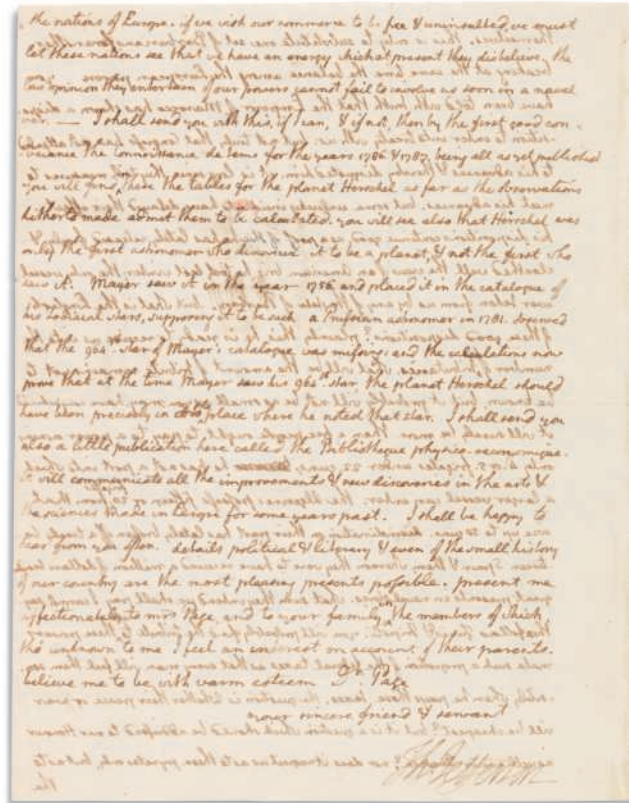 the nations of Europe. if we wish our commerce to be free & uninsulted, we must
let these nations see that we have an energy which at present they disbelieve. the
low opinion they entertain of our powers cannot fail to involve us soon in a naval
war. — I shall send you with this, if I can, & if not, then by the first good con-
veiance the Connoissance de tems for the years 1786 & 1787. being all as yet published
you will find in these the tables for the planet Herschel as far as the observations
hitherto made admit them to be calculated. you will see also that Herschel was
only the first astronomer who discovered it to be a planet, & not the first who
saw it. Mayer saw it in the year 1756 and placed it in the catalogue of
his zodiacal stars, supposing it to be such. a Prussian astronomer in 1781. observed
that the 964th star of Mayer's catalogue was missing: and the calculations now
prove that at the time Mayer saw his 964th star, the planet Herschel should
have been precisely in the place where he noted that star. I shall send you
also a little publication here called the Bibliotheque physico-oeconomique.
it will communicate all the improvements & new discoveries in the arts &
sciences made in Europe for some years past. I shall be happy to
hear from you often. details political & literary & even of the small history
of our country are the most pleasing presents possible. present me
affectionately to mrs Page, and to your family, in the members of which
tho unknown to me I feel an interest on account of their parents.
believe me to be with warm esteem Dr. Page
your sincere friend & servant
Th: Jefferson